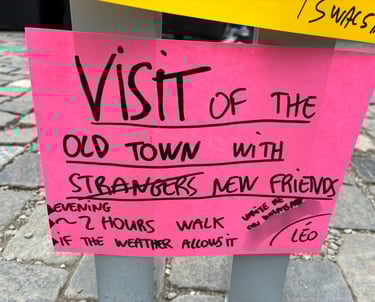 / SWACS
VISIT OF THE
OLD TOWN WITH
STRANGERS NEW FRIENDS
EVENING
~ 2 HOURS WALK
WRITE ME
ON WHATSAPP
IF THE WEATHER ALLOWS IT
LÉO